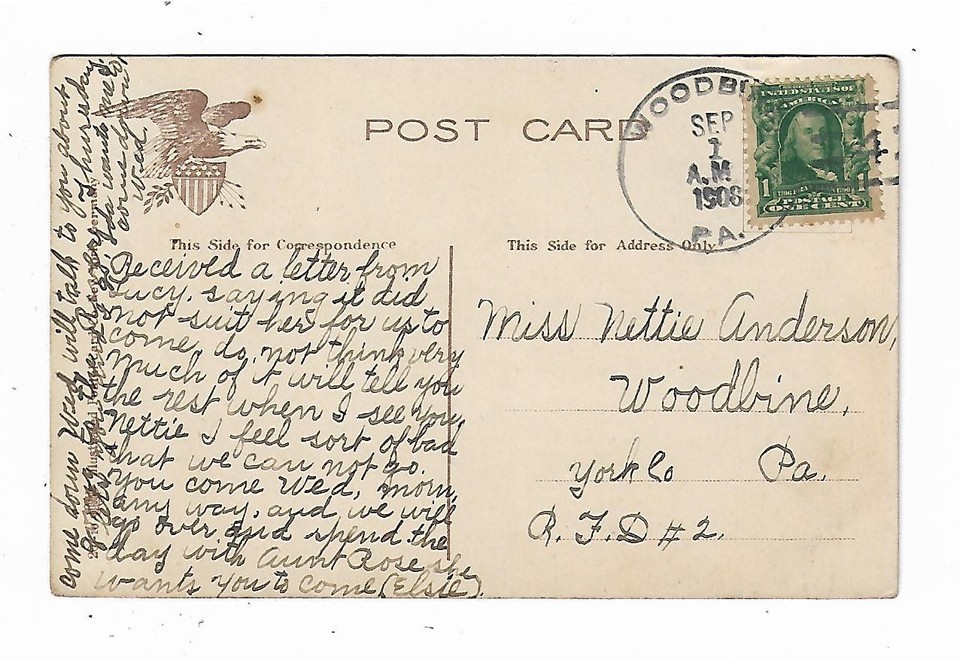 POST CARD
WOODB
SEP
1
A.M.
1908
PA.
UNITED STATES OF
AMERICA
1 1
POSTAGE
ONE CENT
This Side for Correspondence
This Side for Address Only.
Received a letter from
Lucy. saying it did
not suit her for us to
come do not think very
much of it will tell you
the rest when I see you
Nettie I feel sort of bad
that we can not go.
you come Wed, morn,
any way. and we will
go over and spend the
day with Aunt Rose she
wants you to come (Elsie).
come down Wed will talk to you about
Thursday
Ida wants me to
come down
Wed.
Miss Nettie Anderson,
Woodbine,
York Co Pa.
R. F. D # 2.